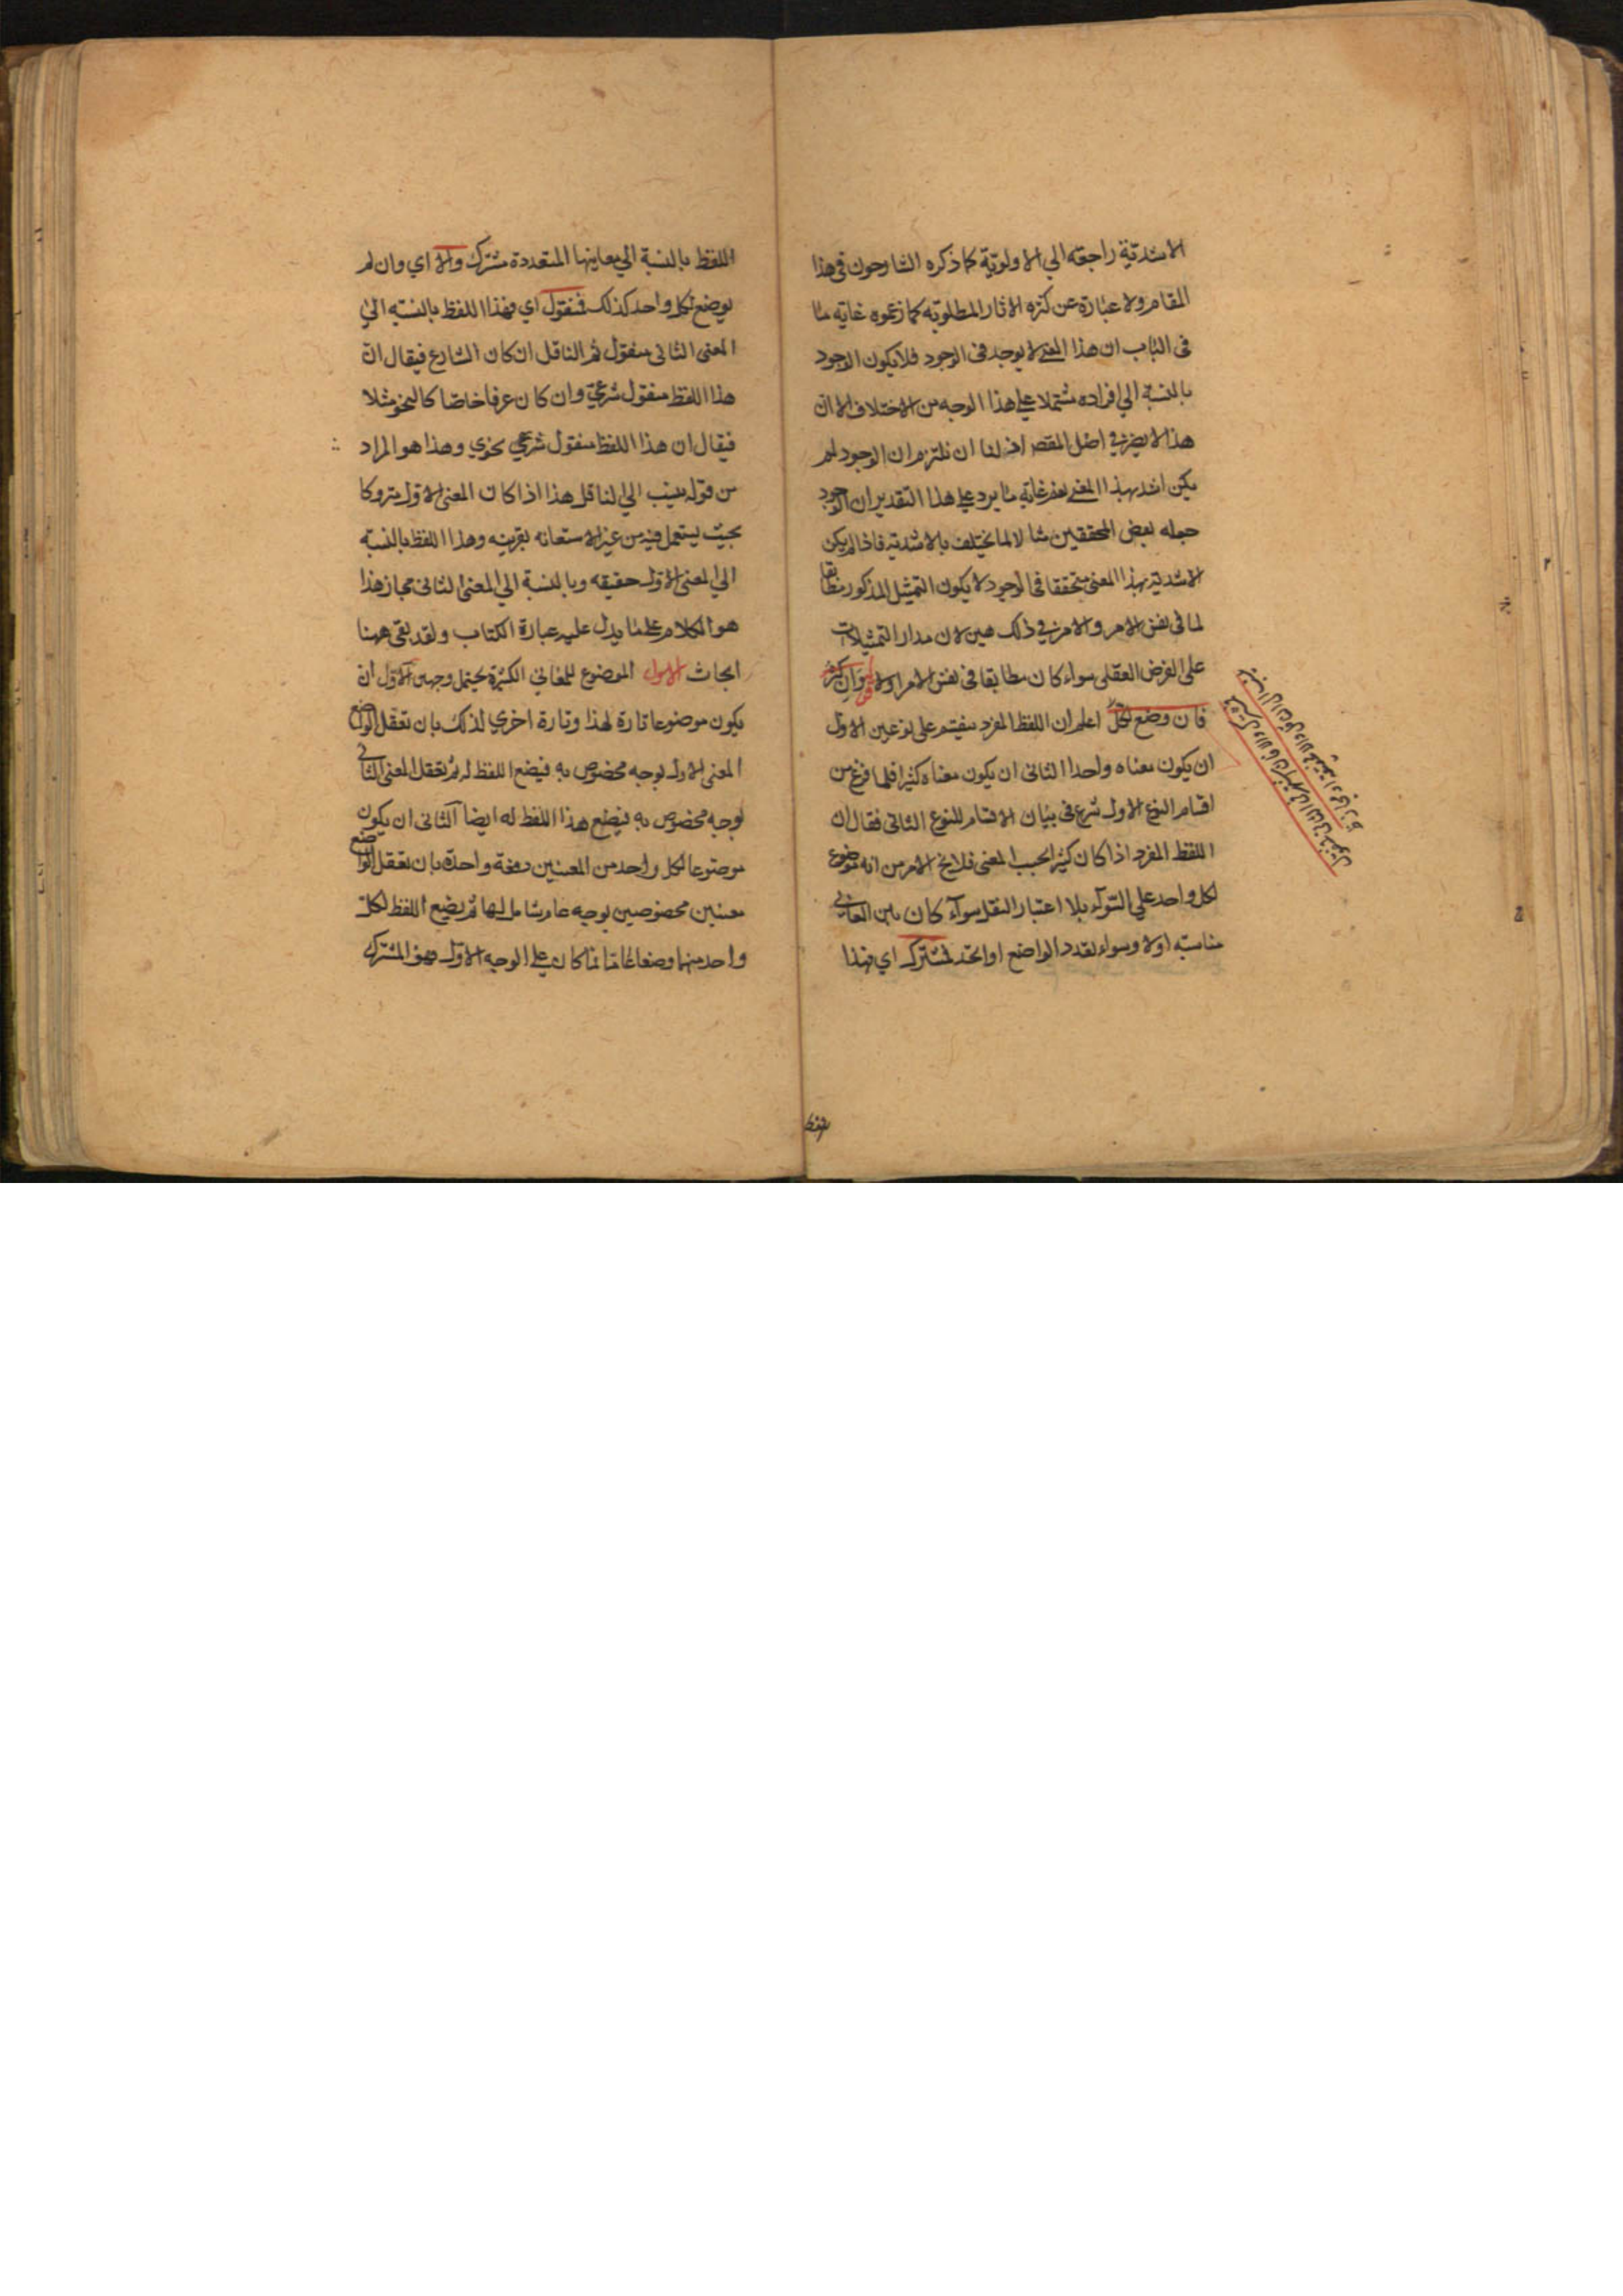 الاشدية راجعة الي الاولوية كما ذكره الشارحون في هذا
المقام ولا عبارة عن كثرة الاثار المطلوبة كما زعموه غاية ما
في الباب ان هذا المعنى لا يوجد في الوجود فلا يكون الوجود
بالنسبة الي افراده مشتملا على هذا الوجه من الاختلاف الا ان
هذا لا يضر في اصل المقصد اذ لنا ان نلتزم ان الوجود لم
يكن اشد بهذا المعنى نعم غاية ما يرد على هذا التقدير ان الوجود
جعله بعض المحققين مثالا لما يختلف بالاشدية فاذا لم يكن
الاشدية بهذا المعنى متحققا في الوجود لا يكون التمثيل المذكور مطابقا
لما في نفس الامر والامر في ذلك هين لان مدار التمثيلات
على الفرض العقلى سواء كان مطابقا في نفس الامر اولا وان كثر
فان وضع لكل اعلم ان اللفظ المفرد ينقسم على نوعين الاول
ان يكون معناه واحدا الثانى ان يكون معناه كثيرا فلما فرغ من
اقسام النوع الاول شرع في بيان الاقسام للنوع الثانى فقال ان
اللفظ المفرد اذا كان كثيرا بحسب المعنى فلا يخ الامر من انه موضوع
لكل واحد على السوآء بلا اعتبار النقل سوآء كان بين المعاني
مناسبة اولا وسواء تعدد الواضع او اتحد فمشترك اي فهذا
اللفظ بالنسبة الي معانيها المتعددة مشترك والا اي وان لم
يوضع لكل واحد كذلك فمنقول اي فهذا اللفظ بالنسبة الي
المعنى الثانى منقول ثم الناقل ان كان الشارع فيقال ان
هذا اللفظ منقول شرعي وان كان عرفا خاصا كالنحو مثلا
فيقال ان هذا اللفظ منقول شرعي نحوي وهذا هو المراد
من قوله ينسب الي الناقل هذا اذا كان المعنى الاول متروكا
بحيث يستعمل فيه من غير الاستعانة بقرينة وهذا اللفظ بالنسبة
الي المعنى الاول حقيقة وبالنسبة الي المعنى الثانى مجاز هذا
هو الكلام على ما يدل عليه عبارة الكتاب ولقد بقى ههنا
ابحاث الاول الموضوع للمعاني الكثيرة يحتمل وجهين الاول ان
يكون موضوعا تارة لهذا وتارة اخري لذلك بان تعقل الواضع
المعنى الاول بوجه مخصوص به فيضع اللفظ له ثم تعقل المعنى الثاني
بوجه مخصوص به فيضع هذا اللفظ له ايضا الثانى ان يكون
موضوعا لكل واحد من المعنيين دفعة واحدة بان تعقل الواضع
معنيين مخصوصين بوجه عام شامل لهما ثم يضع اللفظ لكل
واحد منهما وضعا عاما فما كان على الوجه الاول فهو المشترك